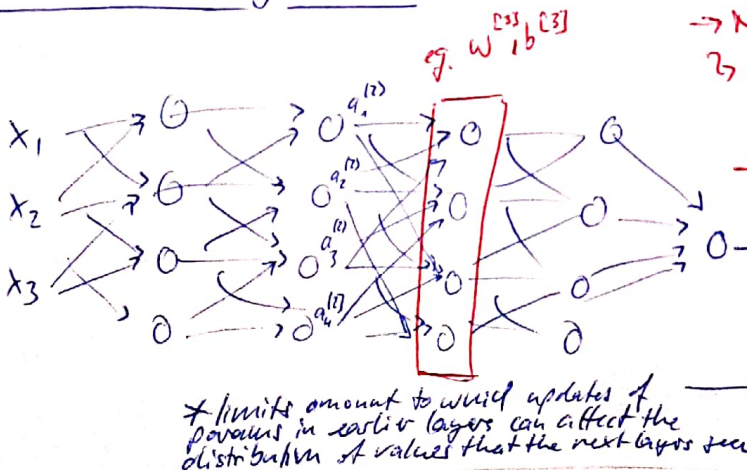 eg. w^[3], b^[3]
x₁
x₂
x₃
a₁^(2)
a₂^(2)
a₃^(2)
a₄^[2]
* limits amount to which updates of
params in earlier layers can affect the
distribution of values that the next layers